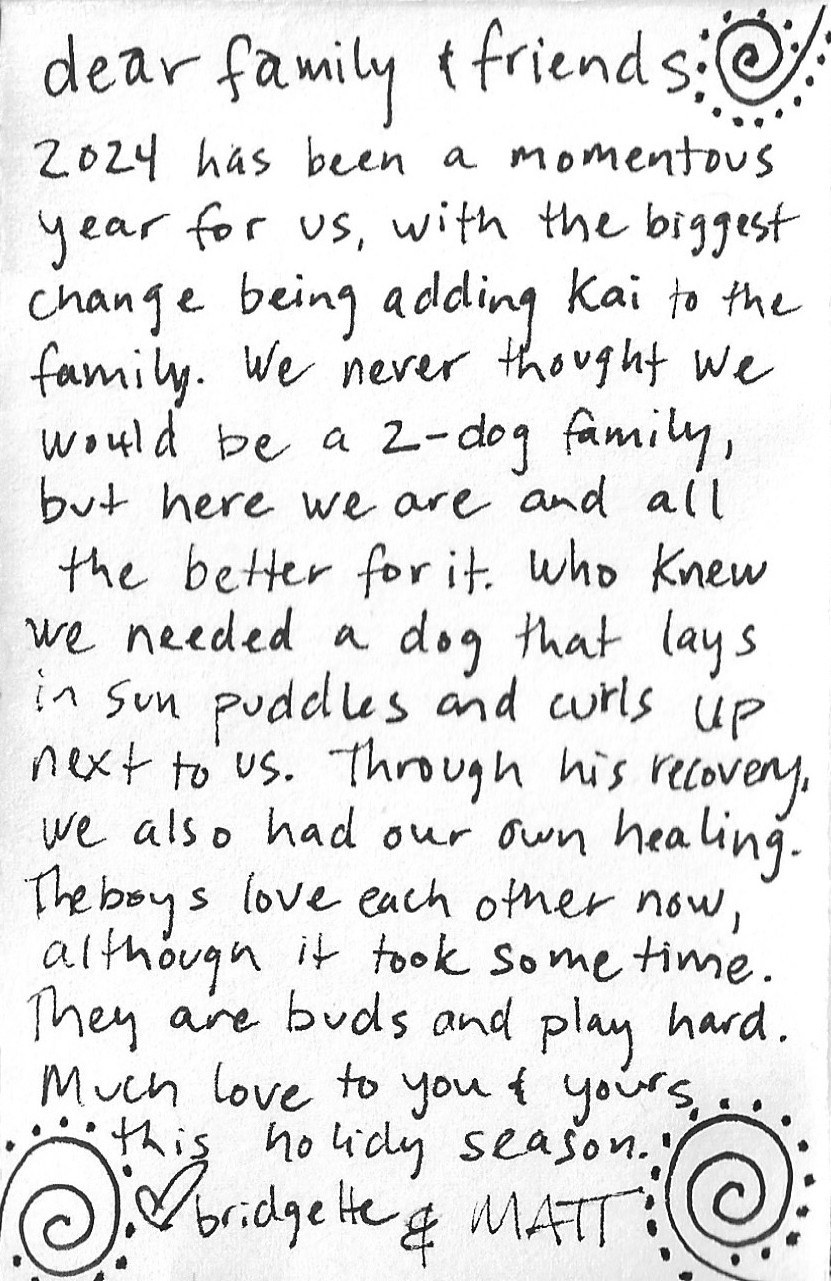 dear family & friends
2024 has been a momentous
year for us, with the biggest
change being adding Kai to the
family. We never thought we
would be a 2-dog family,
but here we are and all
the better for it. Who knew
we needed a dog that lays
in sun puddles and curls up
next to us. Through his recovery,
we also had our own healing.
The boys love each other now,
although it took some time.
They are buds and play hard.
Much love to you & yours
this holidy season.
♡ bridgette & MATT